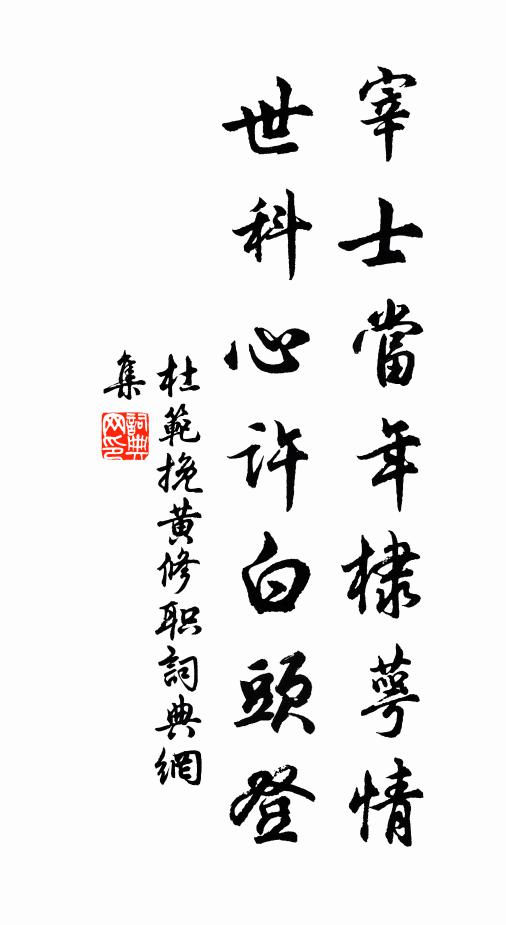 宰士當年棣萼情
世科心許白頭登
杜範挽黄修职詞典網
集
詞典
网印